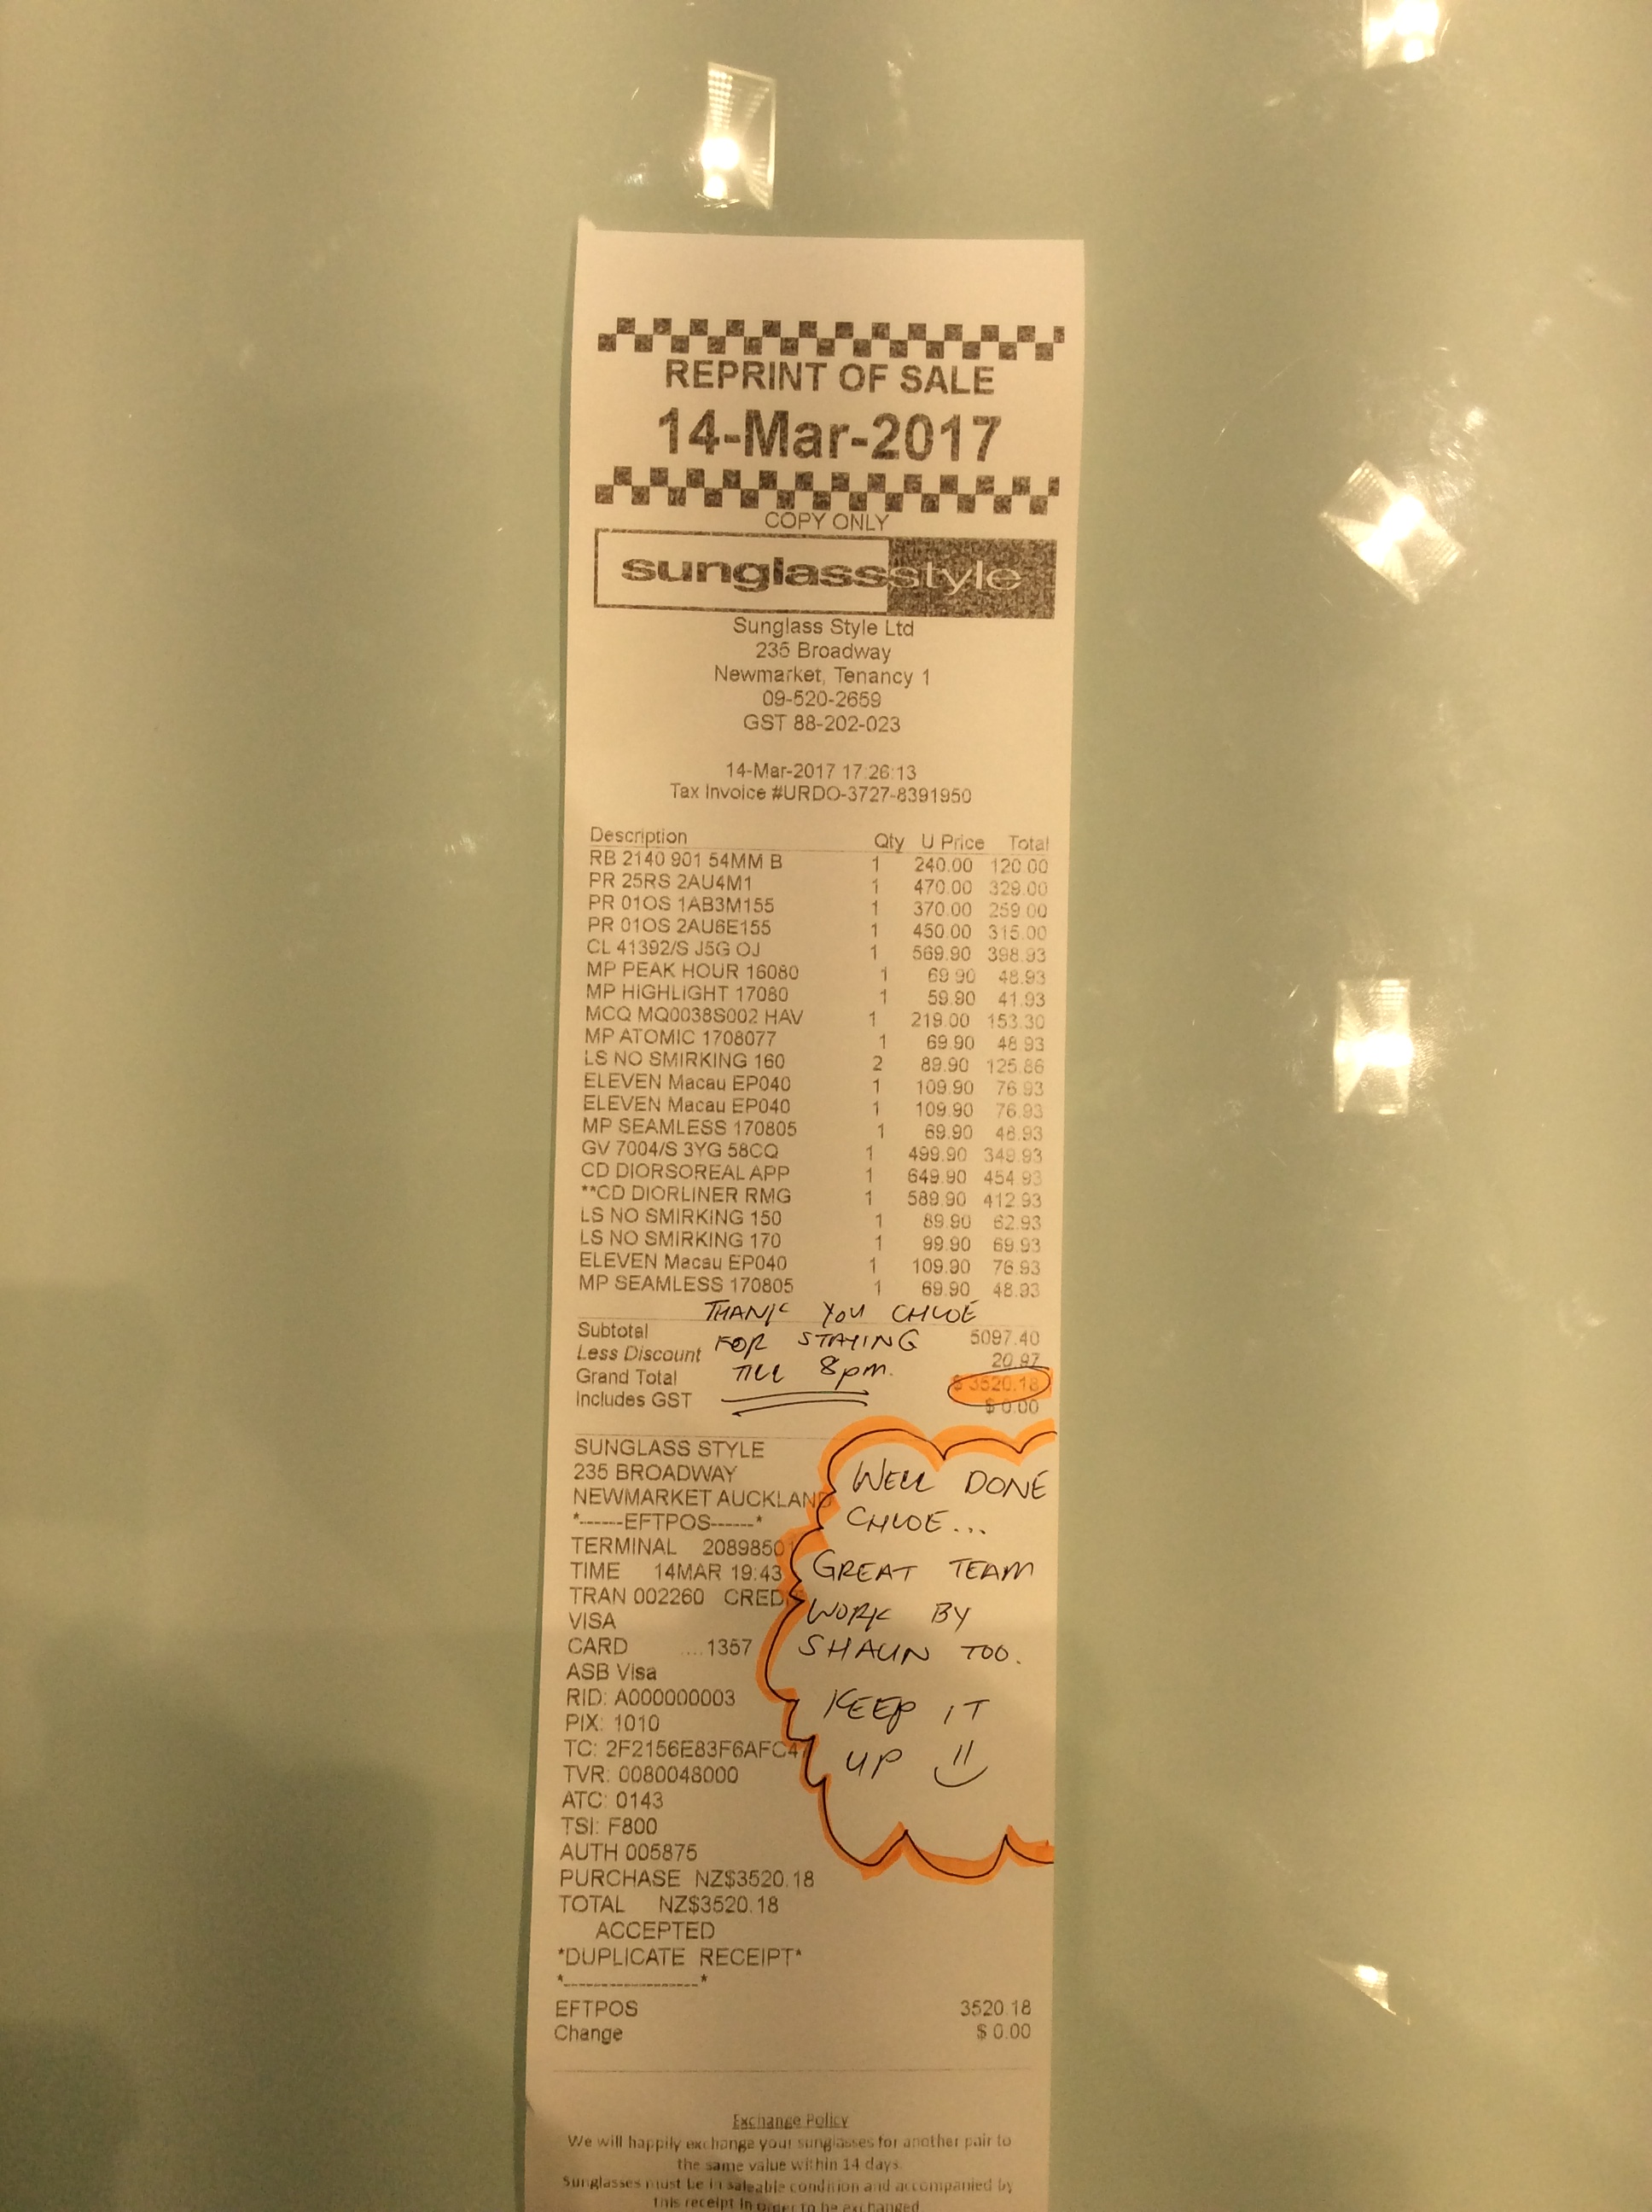 REPRINT OF SALE
14-Mar-2017
COPY ONLY
sunglassstyle
Sunglass Style Ltd
235 Broadway
Newmarket, Tenancy 1
09-520-2659
GST 88-202-023
14-Mar-2017 17:26:13
Tax Invoice #URDO-3727-8391950
Description Qty U Price Total
RB 2140 901 54MM B 1 240.00 120.00
PR 25RS 2AU4M1 1 470.00 329.00
PR 01OS 1AB3M155 1 370.00 259.00
PR 01OS 2AU6E155 1 450.00 315.00
CL 41392/S J5G OJ 1 569.90 398.93
MP PEAK HOUR 16080 1 69.90 48.93
MP HIGHLIGHT 17080 1 59.90 41.93
MCQ MQ0038S002 HAV 1 219.00 153.30
MP ATOMIC 1708077 1 69.90 48.93
LS NO SMIRKING 160 2 89.90 125.86
ELEVEN Macau EP040 1 109.90 76.93
ELEVEN Macau EP040 1 109.90 76.93
MP SEAMLESS 170805 1 69.90 48.93
GV 7004/S 3YG 58CQ 1 499.90 349.93
CD DIORSOREAL APP 1 649.90 454.93
**CD DIORLINER RMG 1 589.90 412.93
LS NO SMIRKING 150 1 89.90 62.93
LS NO SMIRKING 170 1 99.90 69.93
ELEVEN Macau EP040 1 109.90 76.93
MP SEAMLESS 170805 1 69.90 48.93
THANK YOU CHLOE
FOR STAYING
TILL 8pm.
Subtotal 5097.40
Less Discount 20.97
Grand Total $ 3520.18
Includes GST $ 0.00
SUNGLASS STYLE
235 BROADWAY
NEWMARKET AUCKLAND
*------EFTPOS------*
TERMINAL 20898501
TIME 14MAR 19:43
TRAN 002260 CRED
VISA
CARD ....1357
ASB Visa
RID: A000000003
PIX: 1010
TC: 2F2156E83F6AFC4
TVR: 0080048000
ATC: 0143
TSI: F800
AUTH 005875
PURCHASE NZ$3520.18
TOTAL NZ$3520.18
ACCEPTED
*DUPLICATE RECEIPT*
*------------------*
WELL DONE
CHLOE...
GREAT TEAM
WORK BY
SHAUN TOO.
KEEP IT
UP
EFTPOS 3520.18
Change $ 0.00
Exchange Policy
We will happily exchange your sunglasses for another pair to
the same value within 14 days.
Sunglasses must be in saleable condition and accompanied by
this receipt in order to be exchanged